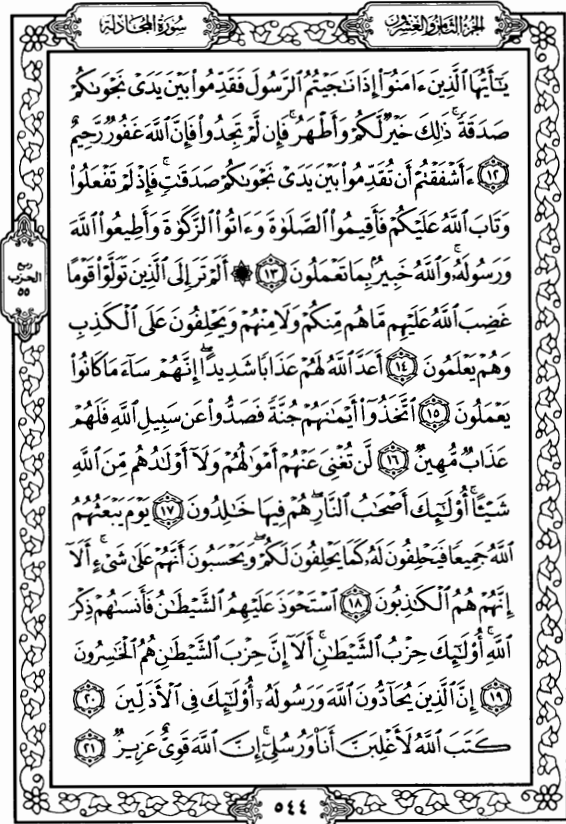 سورة المجادلة
الجزء الثامن والعشرون
يَٰٓأَيُّهَا ٱلَّذِينَ ءَامَنُوٓاْ إِذَا نَٰجَيْتُمُ ٱلرَّسُولَ فَقَدِّمُواْ بَيْنَ يَدَىْ نَجْوَىٰكُمْ
صَدَقَةً ۚ ذَٰلِكَ خَيْرٌ لَّكُمْ وَأَطْهَرُ ۚ فَإِن لَّمْ تَجِدُواْ فَإِنَّ ٱللَّهَ غَفُورٌ رَّحِيمٌ
١٢ ءَأَشْفَقْتُمْ أَن تُقَدِّمُواْ بَيْنَ يَدَىْ نَجْوَىٰكُمْ صَدَقَٰتٍ ۚ فَإِذْ لَمْ تَفْعَلُواْ
وَتَابَ ٱللَّهُ عَلَيْكُمْ فَأَقِيمُواْ ٱلصَّلَوٰةَ وَءَاتُواْ ٱلزَّكَوٰةَ وَأَطِيعُواْ ٱللَّهَ
وَرَسُولَهُۥ ۚ وَٱللَّهُ خَبِيرٌۢ بِمَا تَعْمَلُونَ ١٣ ۞ أَلَمْ تَرَ إِلَى ٱلَّذِينَ تَوَلَّوْاْ قَوْمًا
غَضِبَ ٱللَّهُ عَلَيْهِم مَّا هُم مِّنكُمْ وَلَا مِنْهُمْ وَيَحْلِفُونَ عَلَى ٱلْكَذِبِ
وَهُمْ يَعْلَمُونَ ١٤ أَعَدَّ ٱللَّهُ لَهُمْ عَذَابًا شَدِيدًا ۖ إِنَّهُمْ سَآءَ مَا كَانُواْ
يَعْمَلُونَ ١٥ ٱتَّخَذُوٓاْ أَيْمَٰنَهُمْ جُنَّةً فَصَدُّواْ عَن سَبِيلِ ٱللَّهِ فَلَهُمْ
عَذَابٌ مُّهِينٌ ١٦ لَّن تُغْنِىَ عَنْهُمْ أَمْوَٰلُهُمْ وَلَآ أَوْلَٰدُهُم مِّنَ ٱللَّهِ
شَيْـًٔا ۚ أُوْلَٰٓئِكَ أَصْحَٰبُ ٱلنَّارِ ۖ هُمْ فِيهَا خَٰلِدُونَ ١٧ يَوْمَ يَبْعَثُهُمُ
ٱللَّهُ جَمِيعًا فَيَحْلِفُونَ لَهُۥ كَمَا يَحْلِفُونَ لَكُمْ ۖ وَيَحْسَبُونَ أَنَّهُمْ عَلَىٰ شَىْءٍ ۚ أَلَآ
إِنَّهُمْ هُمُ ٱلْكَٰذِبُونَ ١٨ ٱسْتَحْوَذَ عَلَيْهِمُ ٱلشَّيْطَٰنُ فَأَنسَىٰهُمْ ذِكْرَ
ٱللَّهِ ۚ أُوْلَٰٓئِكَ حِزْبُ ٱلشَّيْطَٰنِ ۚ أَلَآ إِنَّ حِزْبَ ٱلشَّيْطَٰنِ هُمُ ٱلْخَٰسِرُونَ
١٩ إِنَّ ٱلَّذِينَ يُحَآدُّونَ ٱللَّهَ وَرَسُولَهُۥٓ أُوْلَٰٓئِكَ فِى ٱلْأَذَلِّينَ ٢٠
كَتَبَ ٱللَّهُ لَأَغْلِبَنَّ أَنَا۠ وَرُسُلِىٓ ۚ إِنَّ ٱللَّهَ قَوِىٌّ عَزِيزٌ ٢١
ربع
الحزب
٥٥
٥٤٤